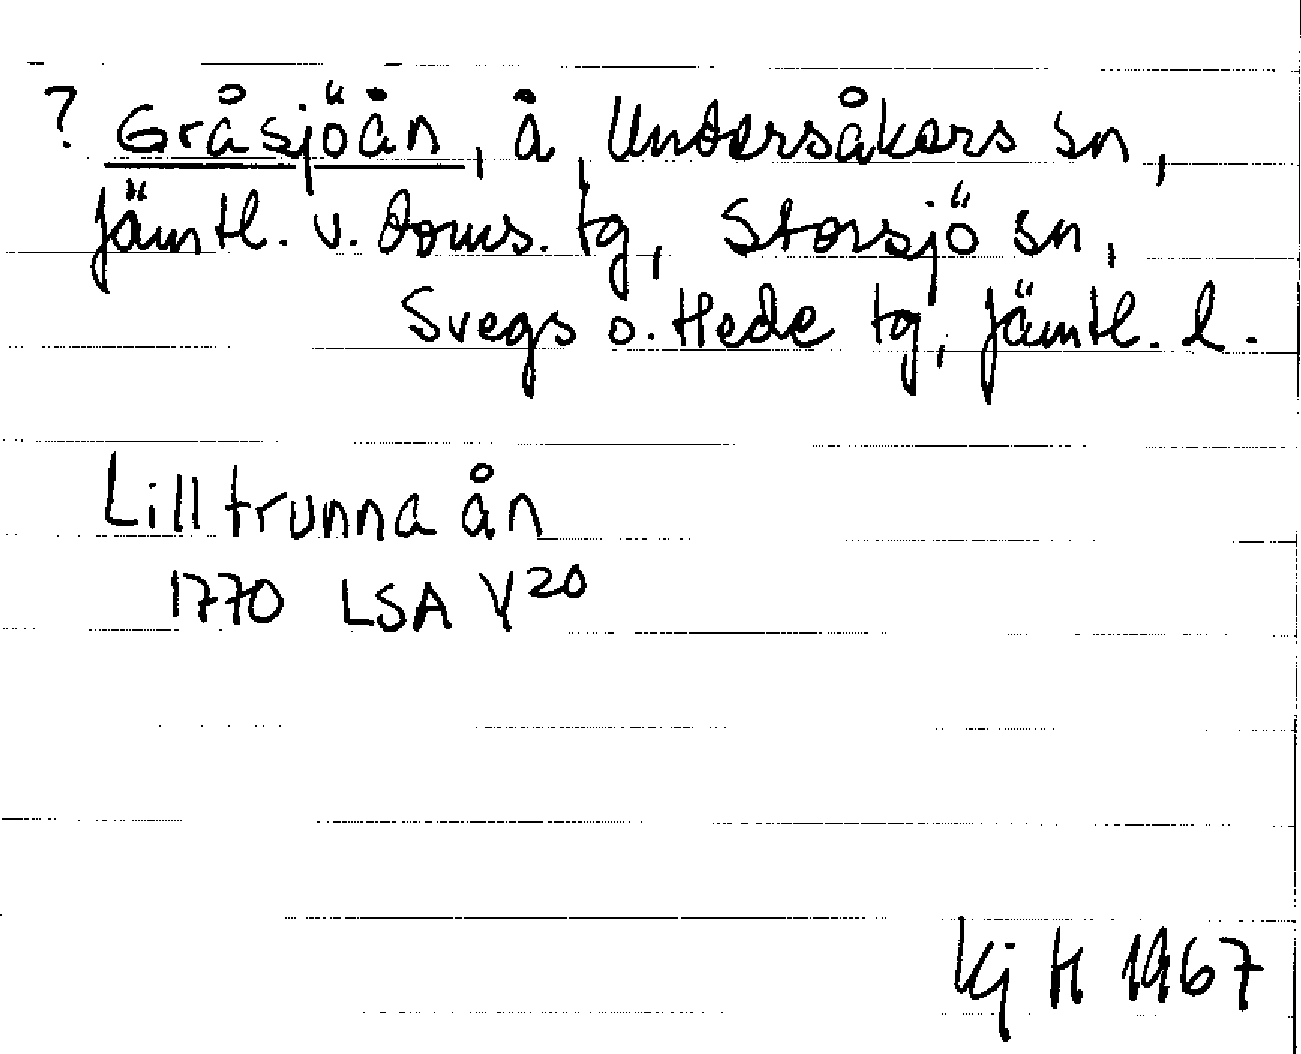 ? Gråsjöån, å Undersåkers sn,
Jämtl. v. doms. tg, Storsjö sn,
Svegs o. Hede tg, Jämtl. l.
Lilltrunna ån
1770 LSA Y20
Kj H 1967